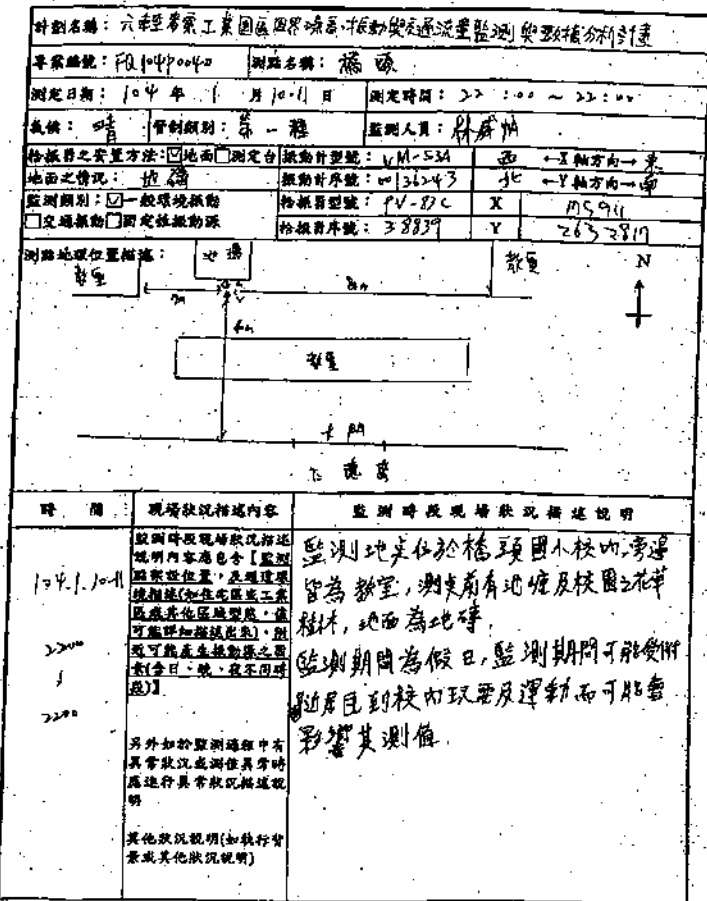 計劃名稱：六輕常業工業園區周界噪音、振動與交通流量監測與數據分析計畫
專案編號：FQ104P0040 測點名稱：橋頭
測定日期：104 年 1 月 10-11 日 測定時間：22：00 ～ 22：00
氣候：晴 管制類別：第一種 監測人員：
拾振器之安置方法：☑地面□測定台 振動計型號：VM-53A 西 ←X軸方向→ 東
地面之情況：地磚 振動計序號：00136243 北 ←Y軸方向→ 南
監測類別：☑一般環境振動 拾振器型號：PV-83C X
□交通振動□固定性振動源 拾振器序號：38839 Y 2632817
測點地理位置描述：
教室 教室 N
7m 8m
6m
教室
大門
時 間 現場狀況描述內容 監測時段現場狀況描述說明
104.1.10-11
2200
∫
2200
監測時段現場狀況描述
說明內容應包含【監測
點架設位置，及週環環
境描述(如住宅區或工業
區或其他區域型態，儘
可能詳細描述出來)，附
近可能產生振動源之因
素(含日、晚、夜不同時
段)】
另外如於監測過程中有
異常狀況或測值異常時
應進行異常狀況描述說
明
其他狀況說明(如執行背
景或其他狀況說明)
監測地點位於橋頭國小校內，旁邊
皆為教室，測點前有池塘及校園之花草
樹木，地面為地磚。
監測期間為假日，監測期間可能受附
近居民到校內玩耍及運動而可能會
影響其測值。